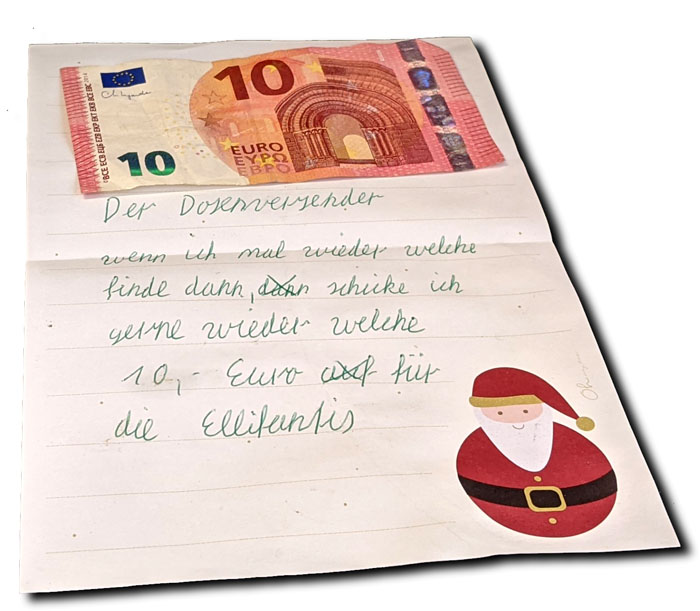 10
BCE ECB ЕЦБ EZB EKP EKT EKB BCE EBC
10
EURO
ΕΥΡΩ
ЕВРО
Der Dosenversender
wenn ich mal wieder welche
finde dann, dann schicke ich
gerne wieder welche
10,- Euro auf für
die Ellifantis